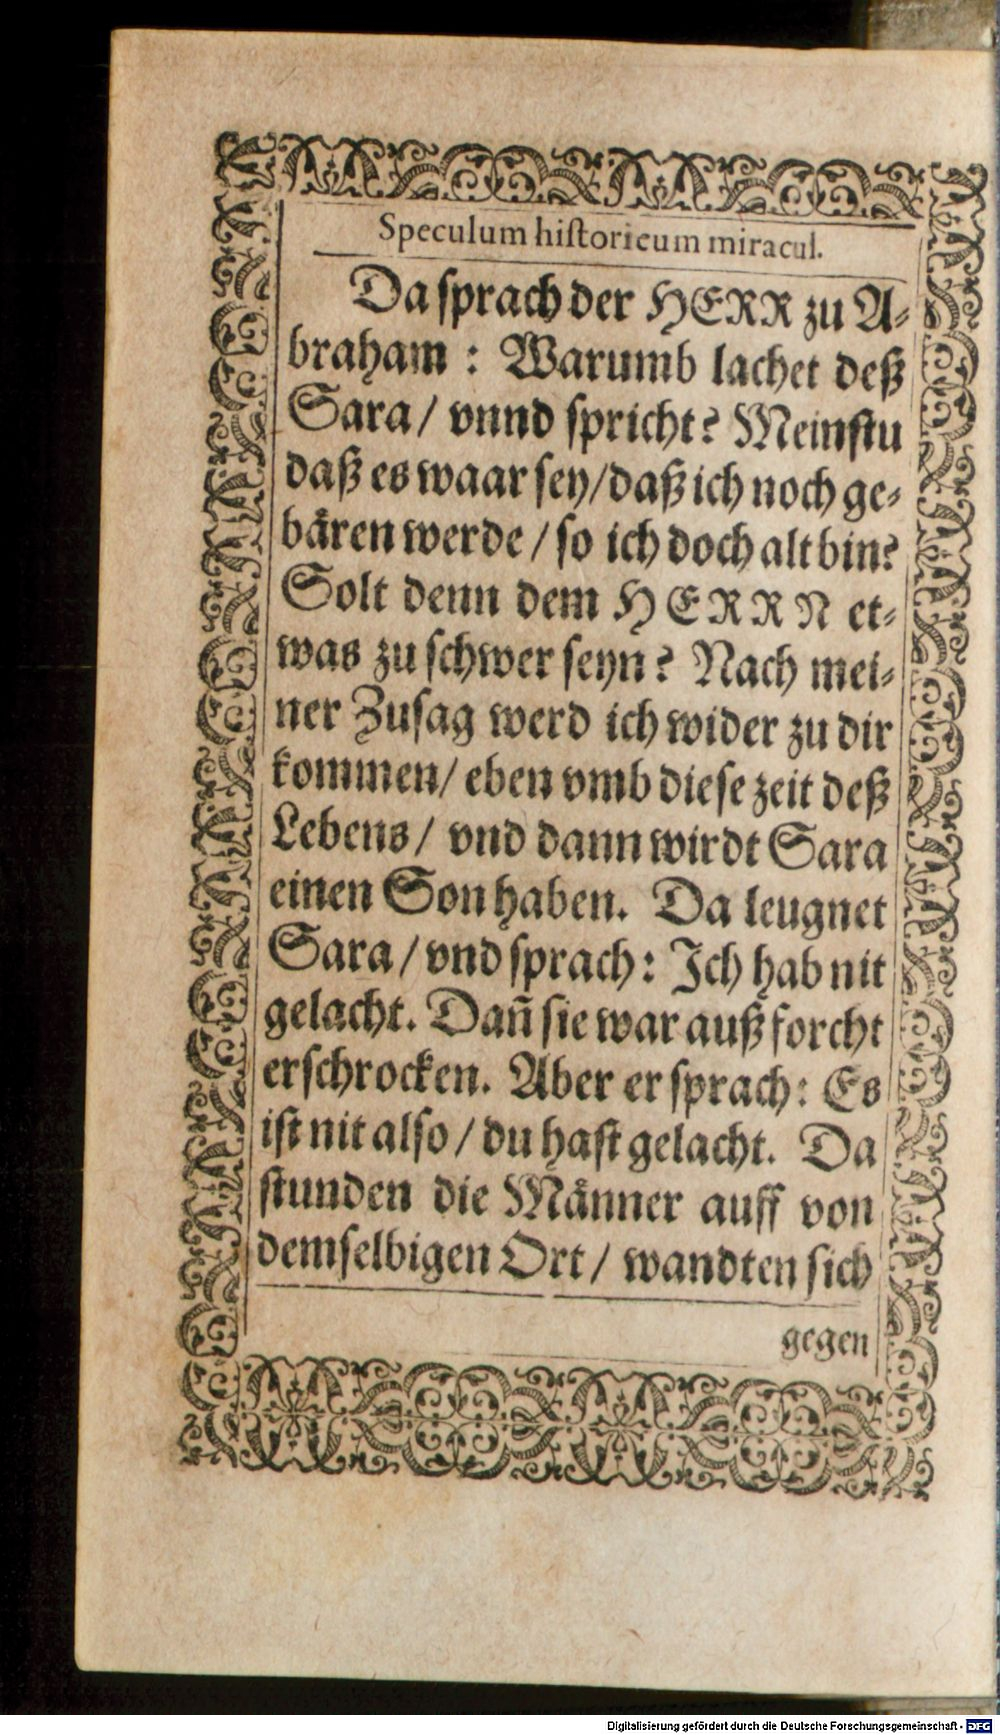 Speculum hiſtoricum miracul.
Da ſprach der HERR zu A-
braham : Warumb lachet deß
Sara/ vnnd ſpricht? Meinſtu
daß es waar ſey/daß ich noch ge-
bären werde / ſo ich doch alt bin?
Solt denn dem HERRN et-
was zu ſchwer ſeyn? Nach mei-
ner Zuſag werd ich wider zu dir
kommen/ eben vmb dieſe zeit deß
Lebens/ vnd dann wirdt Sara
einen Son haben. Da leugnet
Sara / vnd ſprach: Ich hab nit
gelacht. Dañ ſie war auß forcht
erſchrocken. Aber er ſprach: Es
iſt nit alſo / du haſt gelacht. Da
ſtunden die Männer auff von
demſelbigen Ort / wandten ſich
gegen
Digitalisierung gefördert durch die Deutsche Forschungsgemeinschaft - DFG